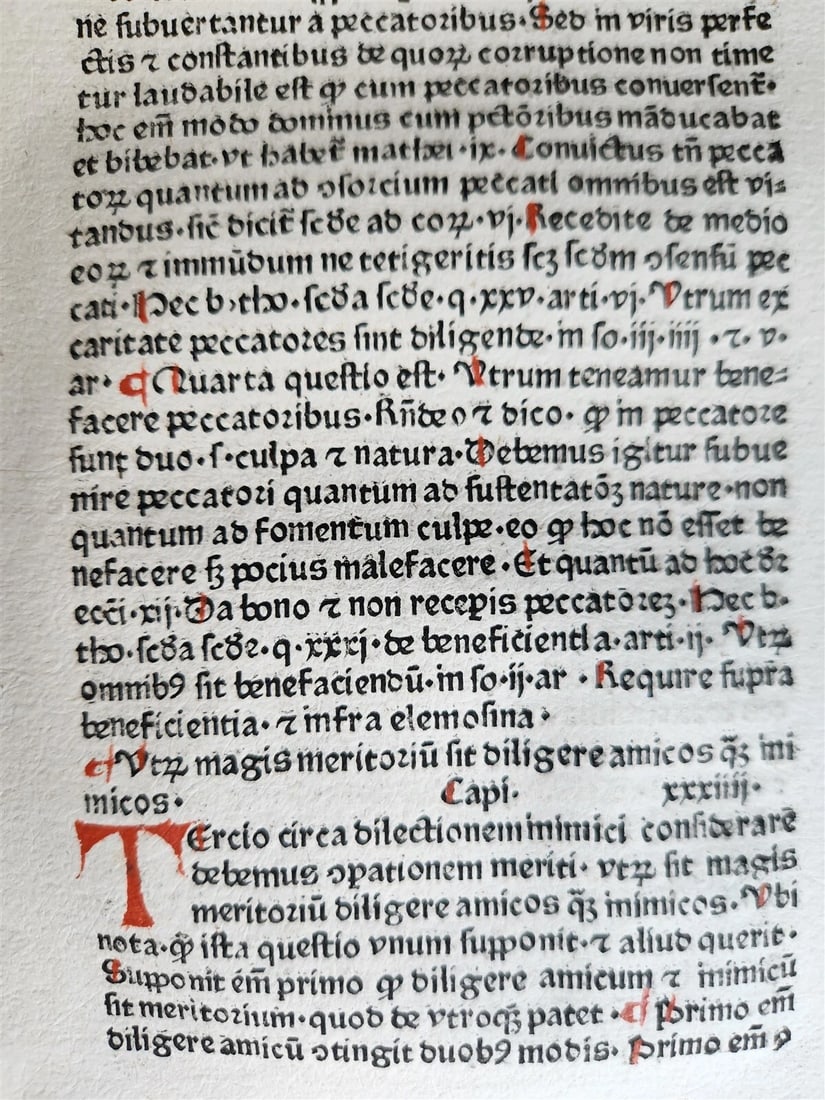 ne ſubuertantur a peccatoꝛibus. Sed in viris perfe
ctis ⁊ conſtantibus de quoꝝ coꝛruptione non time
tur laudabile eſt ꝙ cum peccatoꝛibus conuerſent᷑.
hoc em̄ modo dominus cum pctōꝛibus māducabat
et bibebat. vt habet᷑ mathei. ix. Conuictus tn̄ pecca
toꝝ quantum ad ↄſoꝛcium peccati omnibus eſt vi⸗
tandus. ſic̄ dicit᷑ ſcd̓e ad coꝝ. vj. Recedite de medio
eoꝝ ⁊ immūdum ne tetigeritis ſcꝫ ſcd̓m ↄſenſū pec
cati. Hec b. tho. ſcd̓a ſcd̓e. q. xxv. arti. vj. Vtrum ex
caritate peccatoꝛes ſint diligende. in ſo. iij. iiij. ⁊. v.
ar. ¶ Quarta queſtio eſt. Vtrum teneamur bene⸗
facere peccatoꝛibus. Rn̄deo ⁊ dico. ꝙ in peccatoꝛe
ſunt duo. ſ. culpa ⁊ natura. Debemus igitur ſubue
nire peccatoꝛi quantum ad ſuſtentatōꝫ nature. non
quantum ad fomentum culpe. eo ꝙ hoc nō eſſet be
nefacere ſꝫ pocius malefacere. Et quantū ad hoc d̓ꝛ
ecci. xij. Da bono ⁊ non recepis peccatoꝛeꝫ. Hec b.
tho. ſcd̓a ſcd̓e. q. xxxj. de beneficientia. arti. ij. Vtꝝ
omnibꝰ ſit benefaciendū. in ſo. ij. ar. Require ſupra
beneficientia. ⁊ infra elemoſina.
¶ Vtꝝ magis meritoꝛiū ſit diligere amicos q̄ꝫ ini
micos. Capi. xxxiiij.
TErcio circa dilectionem inimici conſiderare
debemus ↄpationem meriti. vtꝝ ſit magis
meritoꝛiū diligere amicos q̄ꝫ inimicos. Vbi
nota. ꝙ iſta queſtio vnum ſupponit. ⁊ aliud querit.
Supponit em̄ primo ꝙ diligere amicum ⁊ inimicū
ſit meritoꝛium. quod de vtroqꝫ patet. ¶ Primo em̄
diligere amicū ↄtingit duobꝰ modis. Primo em̄ ꝯ